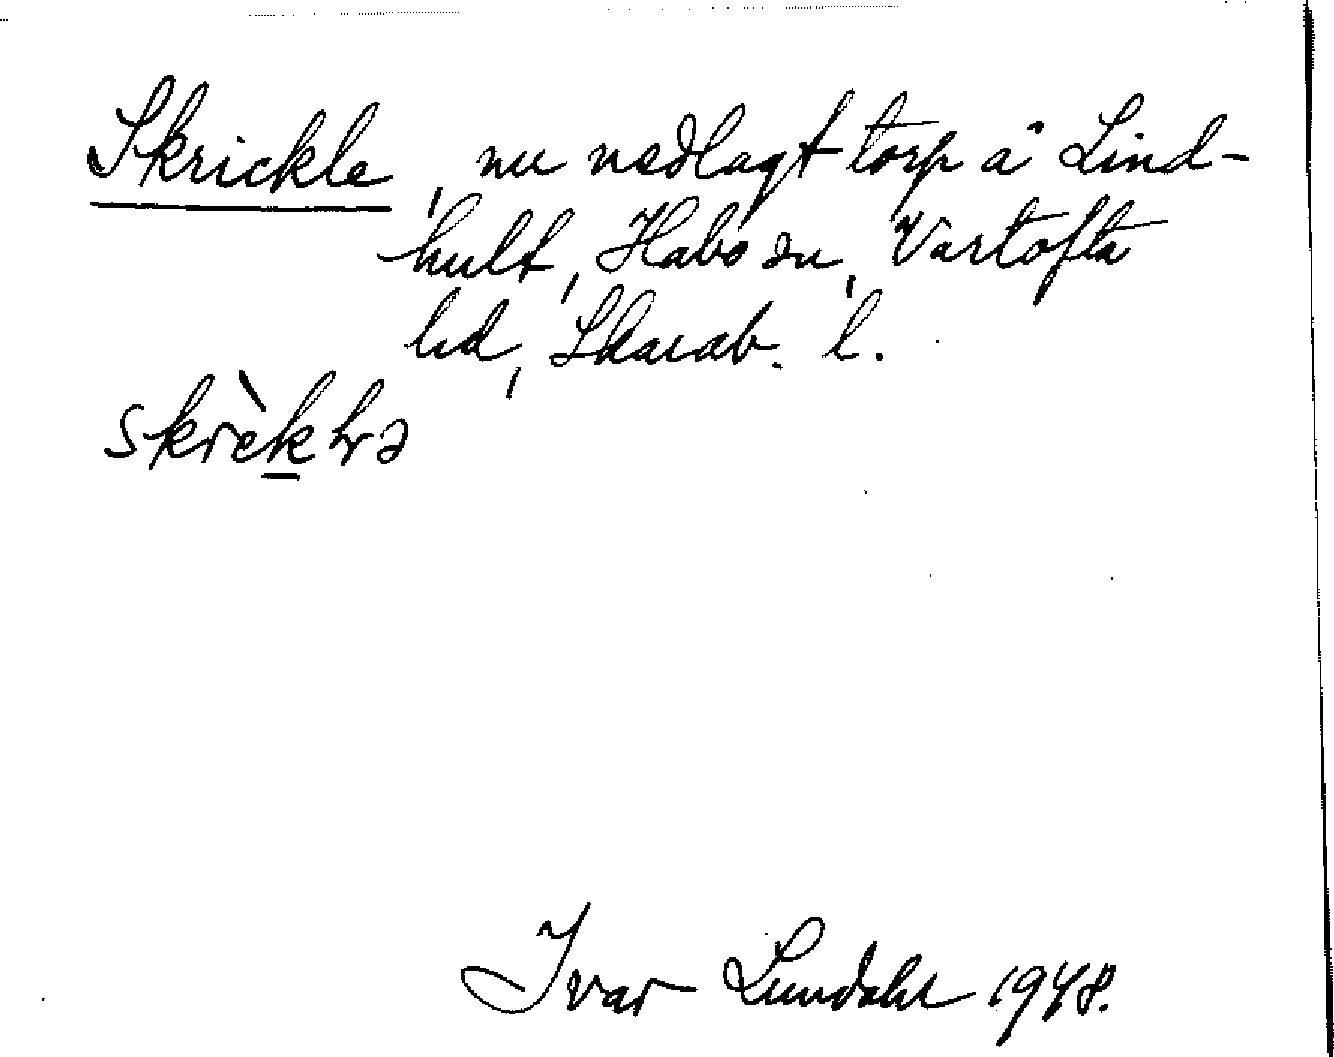 Skrickle, nu nedlagt torp å Lind-
hult, Habo sn, Vartofta
hd, Skarab. l.
skrèk
Ivar Lundahl 1948.